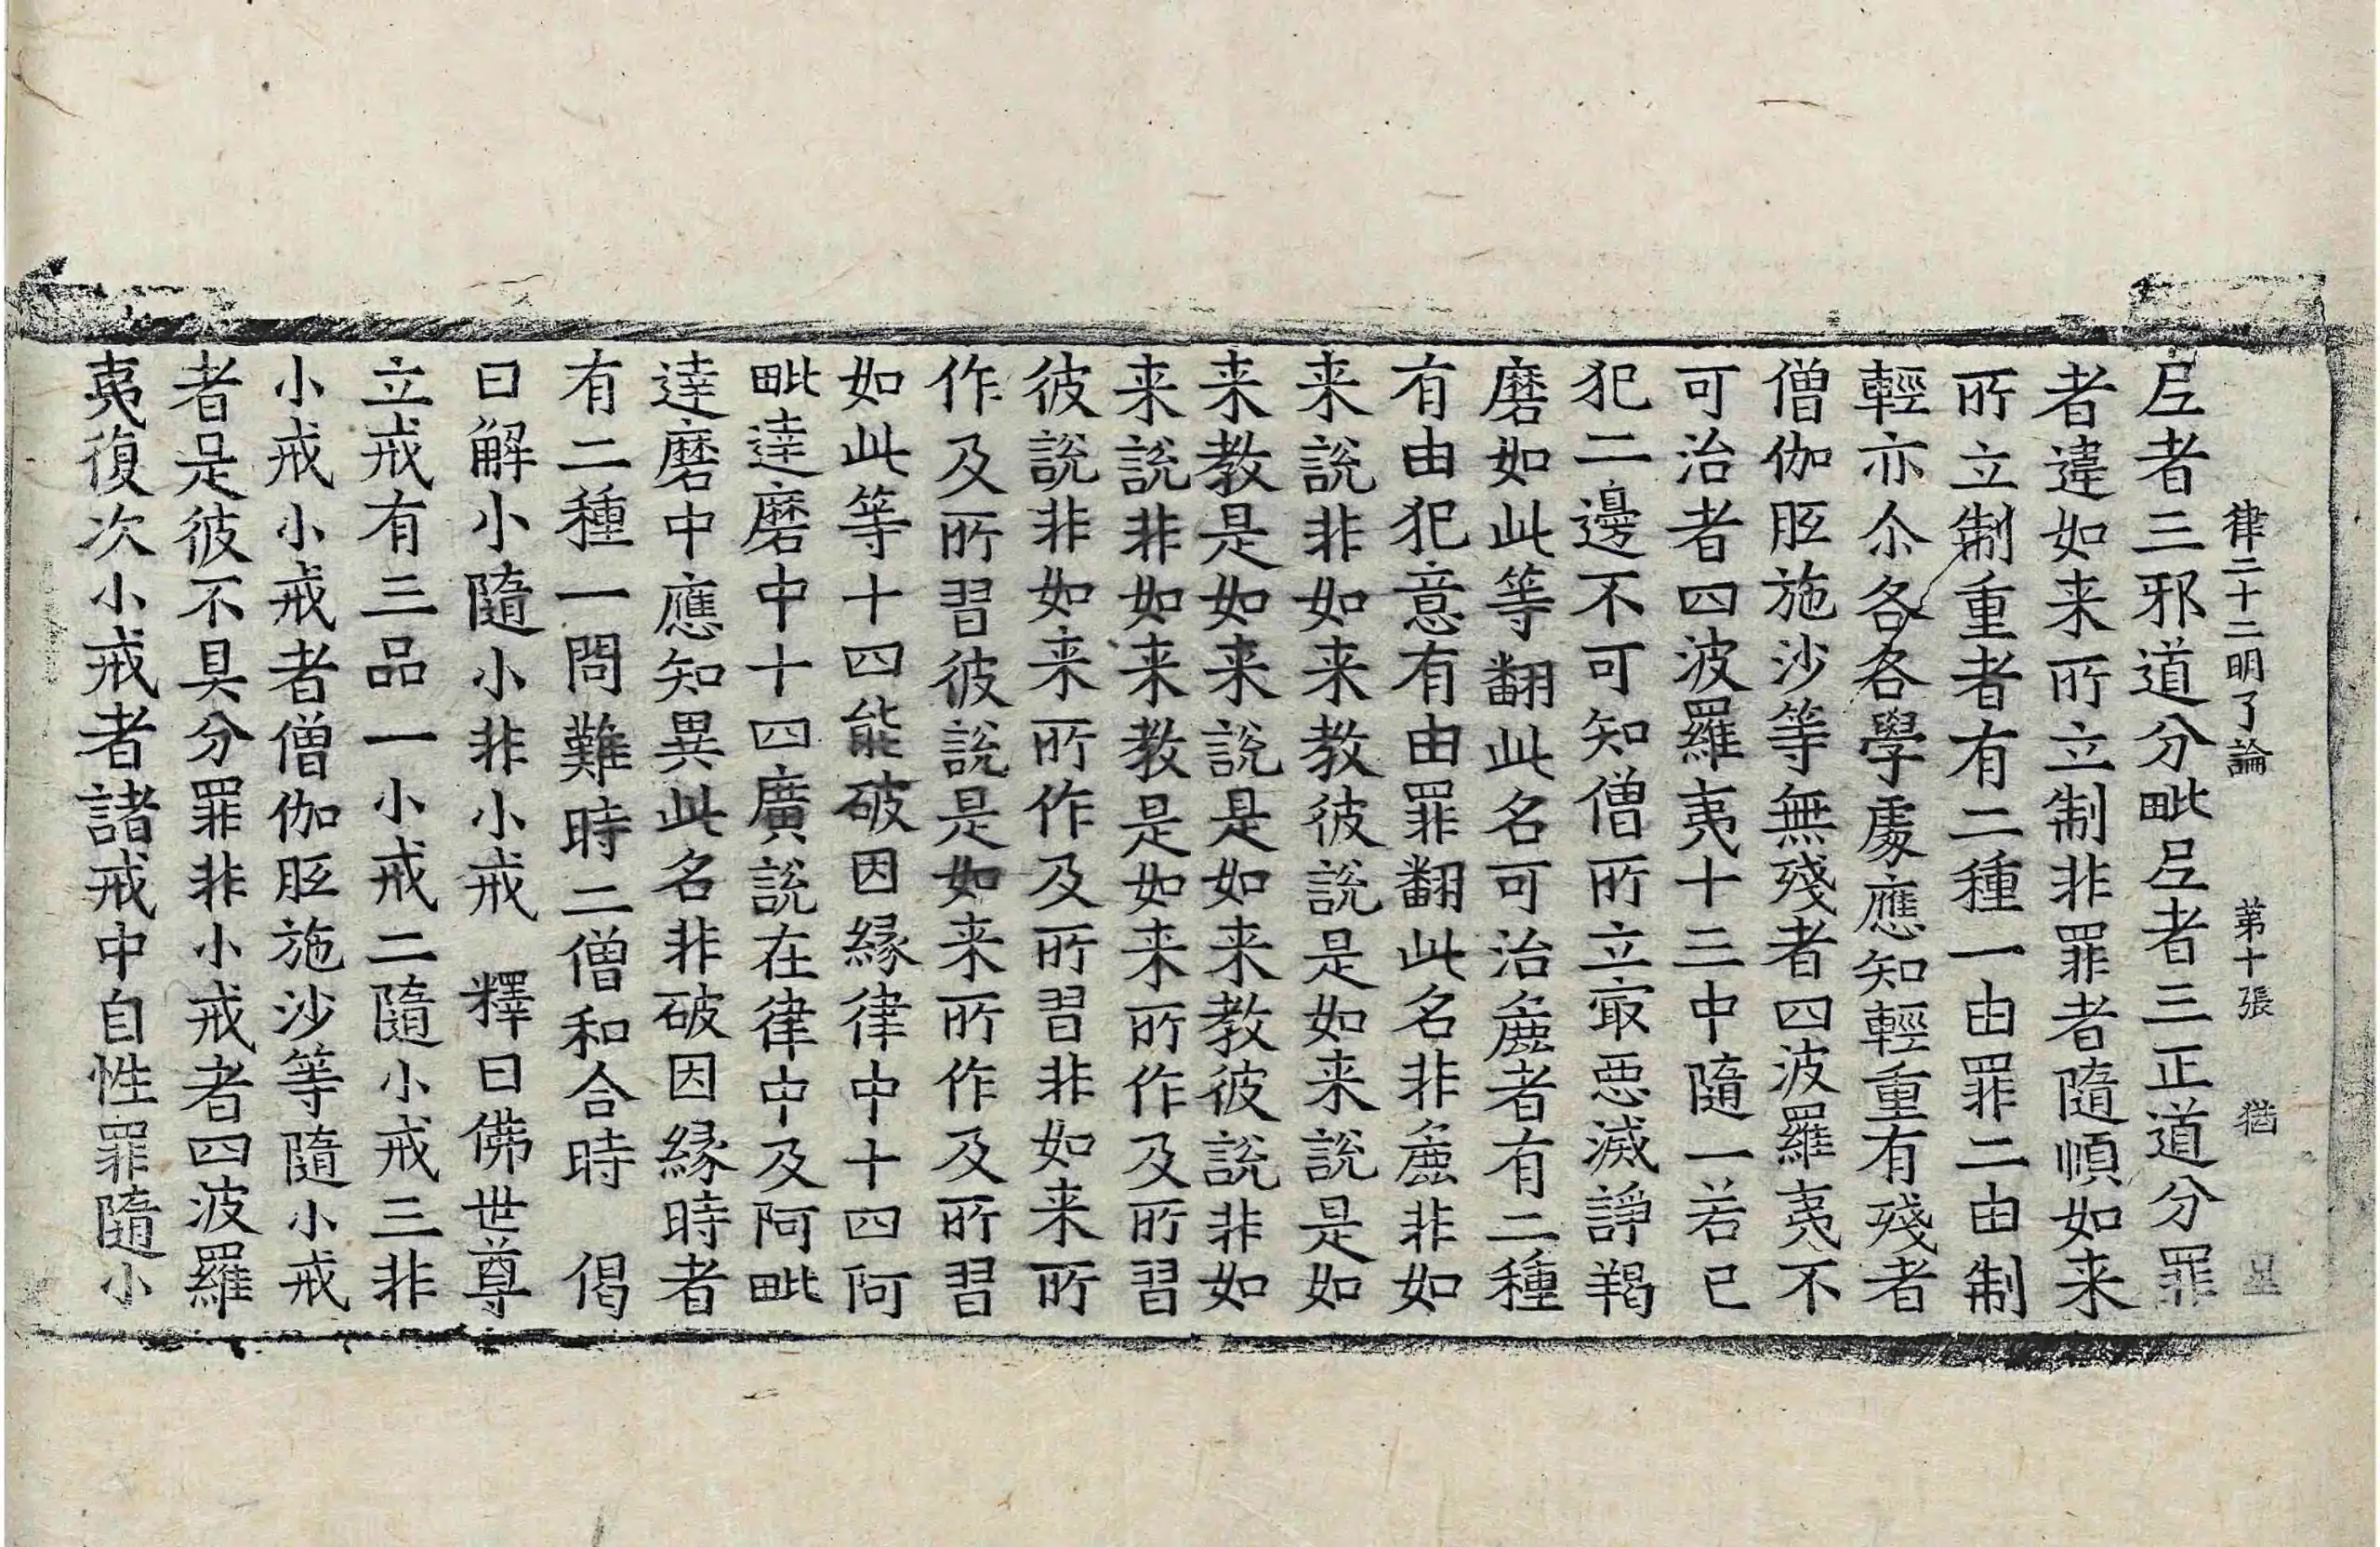 律二十二明了論　第十張　猶　㞷
尼者三邪道分毗尼者三正道分罪
者違如来所立制非罪者隨順如来
所立制重者有二種一由罪二由制
輕亦尒各各學處應知輕重有殘者
僧伽胝施沙等無殘者四波羅夷不
可治者四波羅夷十三中隨一若已
犯二邊不可知僧所立㝡惡滅諍羯
磨如此等翻此名可治麁者有二種
有由犯意有由罪翻此名非麁非如
来說非如来教彼說是如来說是如
来教是如来說是如来教彼說非如
来說非如来教是如来所作及所習
彼說非如来所作及所習非如来所
作及所習彼說是如来所作及所習
如此等十四能破因緣律中十四阿
毗達磨中十四廣說在律中及阿毗
達磨中應知異此名非破因緣時者
有二種一問難時二僧和合時　偈
曰解小隨小非小戒　釋曰佛世尊
立戒有三品一小戒二隨小戒三非
小戒小戒者僧伽胝施沙等隨小戒
者是彼不具分罪非小戒者四波羅
夷復次小戒者諸戒中自性罪隨小